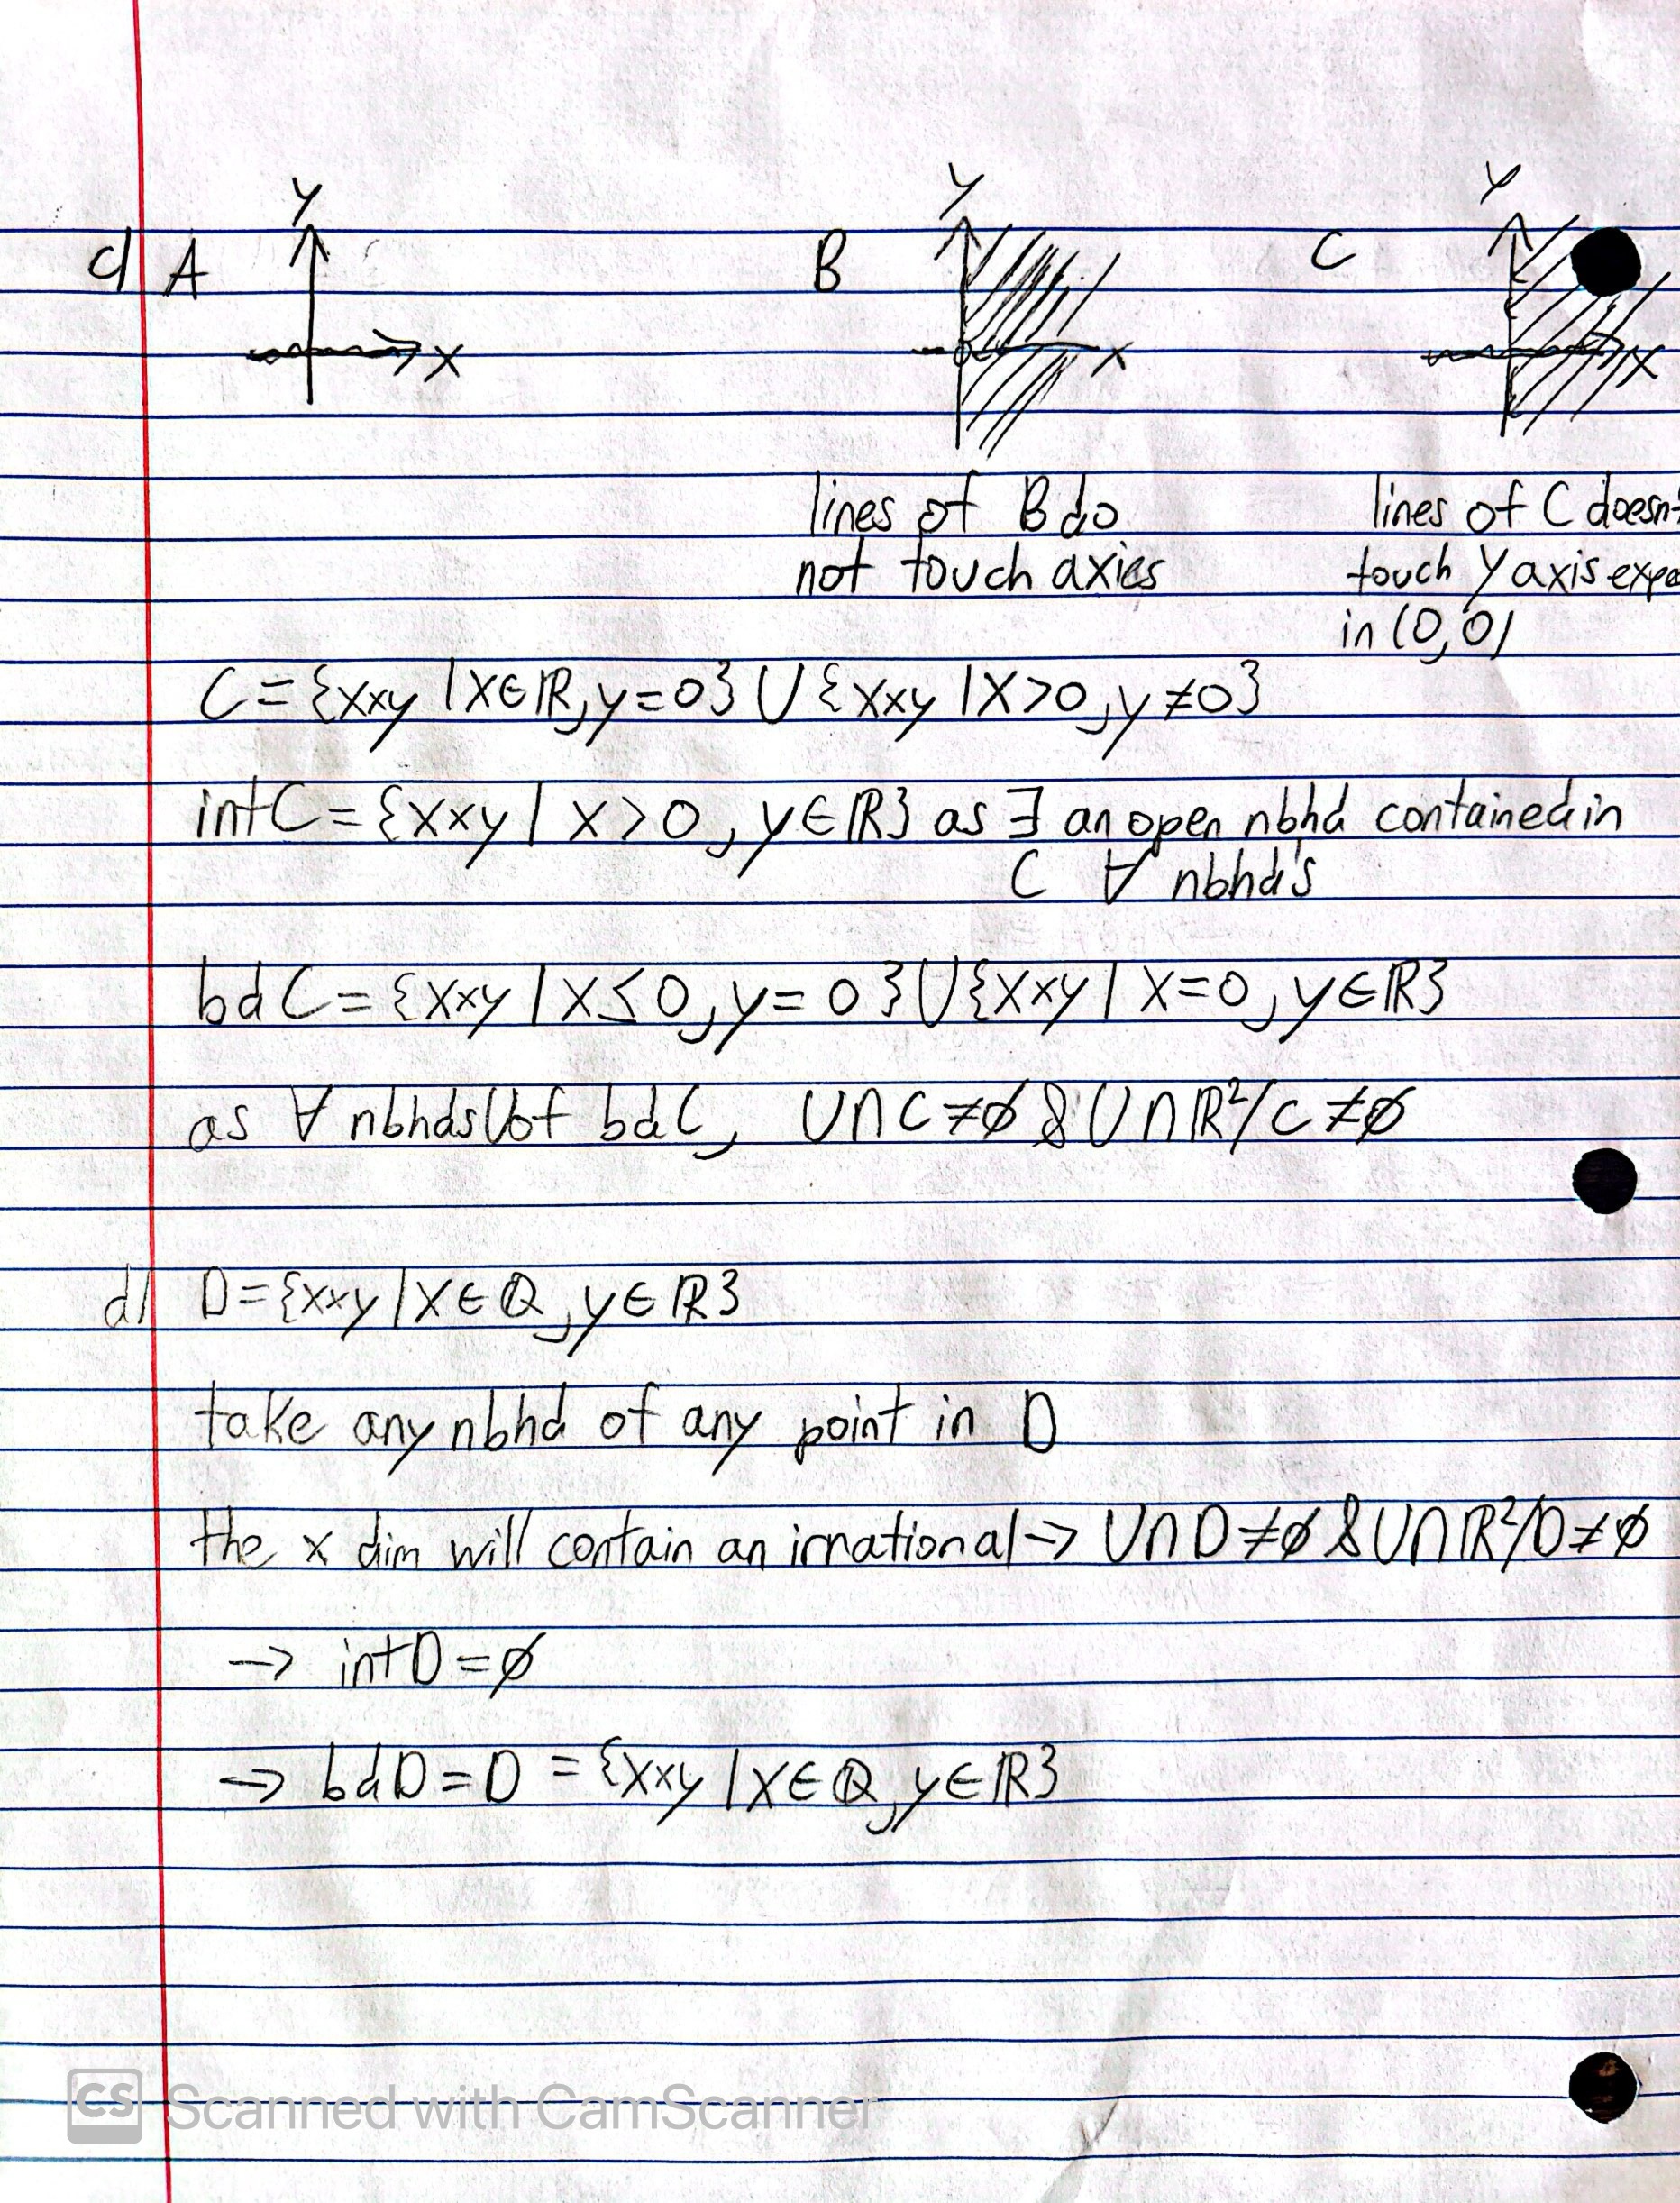 c) A Y X B Y X C Y X
lines of B do lines of C doesn't
not touch axies touch Y axis
in (0,0)
C = {x×y | x∈ℝ, y=0} ∪ {x×y | x>0, y≠0}
int C = {x×y | x>0, y∈ℝ} as ∃ an open nbhd contained in
C ∀ nbhd's
bd C = {x×y | x≤0, y=0} ∪ {x×y | x=0, y∈ℝ}
as ∀ nbhds U of bd C, U∩C≠∅ & U∩ℝ²/C≠∅
d) D = {x×y | x∈ℚ, y∈ℝ}
take any nbhd of any point in D
the x dim will contain an irrational → U∩D≠∅ & U∩ℝ²/D≠∅
→ int D = ∅
→ bd D = D = {x×y | x∈ℚ, y∈ℝ}
CS Scanned with CamScanner